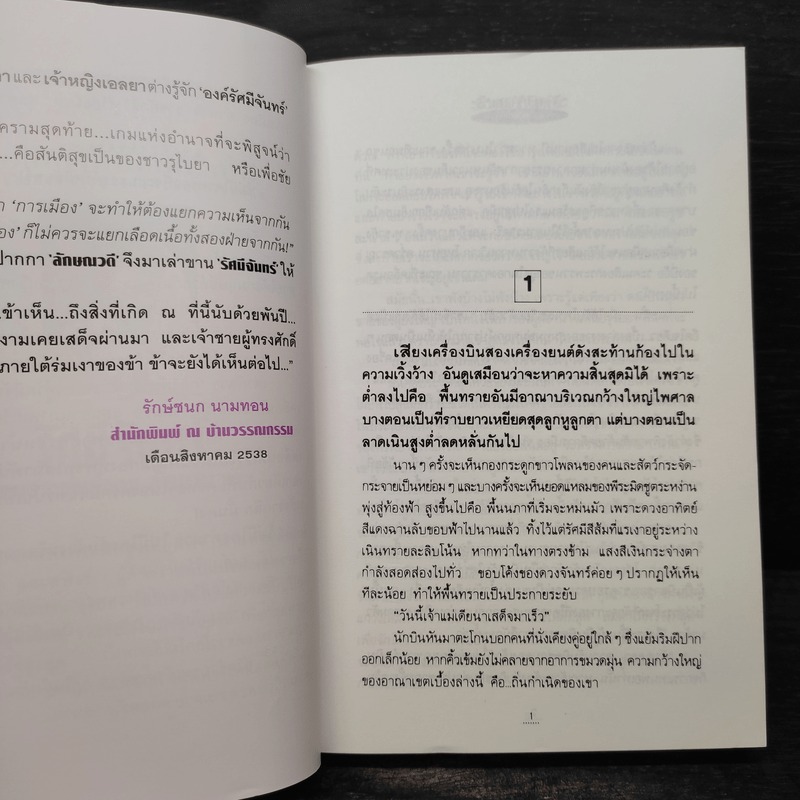 และ เจ้าหญิงเอลยา ต่างรู้จัก 'องค์รัศมีจันทร์'
ครามสุดท้าย...เกมแห่งอำนาจที่จะพิสูจน์ว่า
...คือสันติสุขเป็นของชาวรุไบยา หรือเพื่อชัย
'การเมือง' จะทำให้ต้องแยกความเห็นจากกัน
ก็ไม่ควรจะแยกเลือดเนื้อทั้งสองฝ่ายจากกัน!"
ปากกา 'ลักษณวดี' จึงมาเล่าขาน 'รัศมีจันทร์' ให้
เข้าเห็น...ถึงสิ่งที่เกิด ณ ที่นี้นับด้วยพันปี...
งามเคยเสด็จผ่านมา และเจ้าชายผู้ทรงศักดิ์
ภายใต้ร่มเงาของข้า ข้าจะยังได้เห็นต่อไป..."
รักษ์ชนก นามทอน
สำนักพิมพ์ ณ บ้านวรรณกรรม
เดือนสิงหาคม 2538
1
เสียงเครื่องบินสองเครื่องยนต์ดังสะท้านก้องไปใน
ความเวิ้งว้าง อันดูเสมือนว่าจะหาความสิ้นสุดมิได้ เพราะ
ต่ำลงไปคือ พื้นทรายอันมีอาณาบริเวณกว้างใหญ่ไพศาล
บางตอนเป็นที่ราบยาวเหยียดสุดลูกหูลูกตา แต่บางตอนเป็น
ลาดเนินสูงต่ำลดหลั่นกันไป
นาน ๆ ครั้งจะเห็นกองกระดูกขาวโพลนของคนและสัตว์กระจัด-
กระจายเป็นหย่อม ๆ และบางครั้งจะเห็นยอดแหลมของพีระมิดชูตระหง่าน
พุ่งสู่ท้องฟ้า สูงขึ้นไปคือ พื้นนภาที่เริ่มจะหม่นมัว เพราะดวงอาทิตย์
สีแดงฉานลับขอบฟ้าไปนานแล้ว ทิ้งไว้แต่รัศมีสีส้มที่แรเงาอยู่ระหว่าง
เนินทรายละลิบโน้น หากทว่าในทางตรงข้าม แสงสีเงินกระจ่างตา
กำลังสอดส่องไปทั่ว ขอบโค้งของดวงจันทร์ค่อย ๆ ปรากฏให้เห็น
ทีละน้อย ทำให้พื้นทรายเป็นประกายระยับ
"วันนี้เจ้าแม่เดียนาเสด็จมาเร็ว"
นักบินหันมาตะโกนบอกคนที่นั่งเคียงคู่อยู่ใกล้ ๆ ซึ่งแย้มริมฝีปาก
ออกเล็กน้อย หากคิ้วเข้มยังไม่คลายจากอาการขมวดมุ่น ความกว้างใหญ่
ของอาณาเขตเบื้องล่างนี้ คือ...ถิ่นกำเนิดของเขา
1